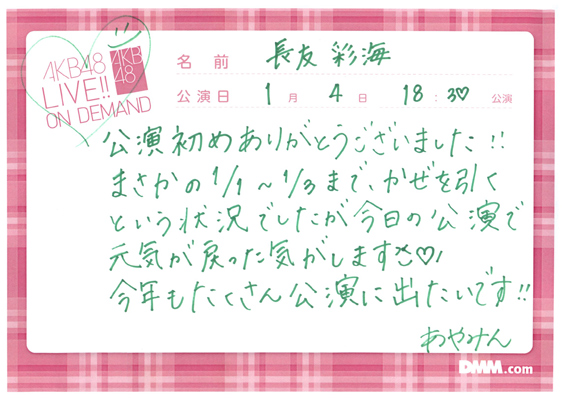 AKB48
LIVE!!
ON DEMAND
AKB
48
名前 長友 彩海
公演日 1月 4日 18:30 公演
公演初めありがとうございました!!
まさかの1/1～1/3まで、かぜを引く
という状況でしたが今日の公演で
元気が戻った気がします♡
今年もたくさん公演に出たいです!!
あやみん
DMM.com